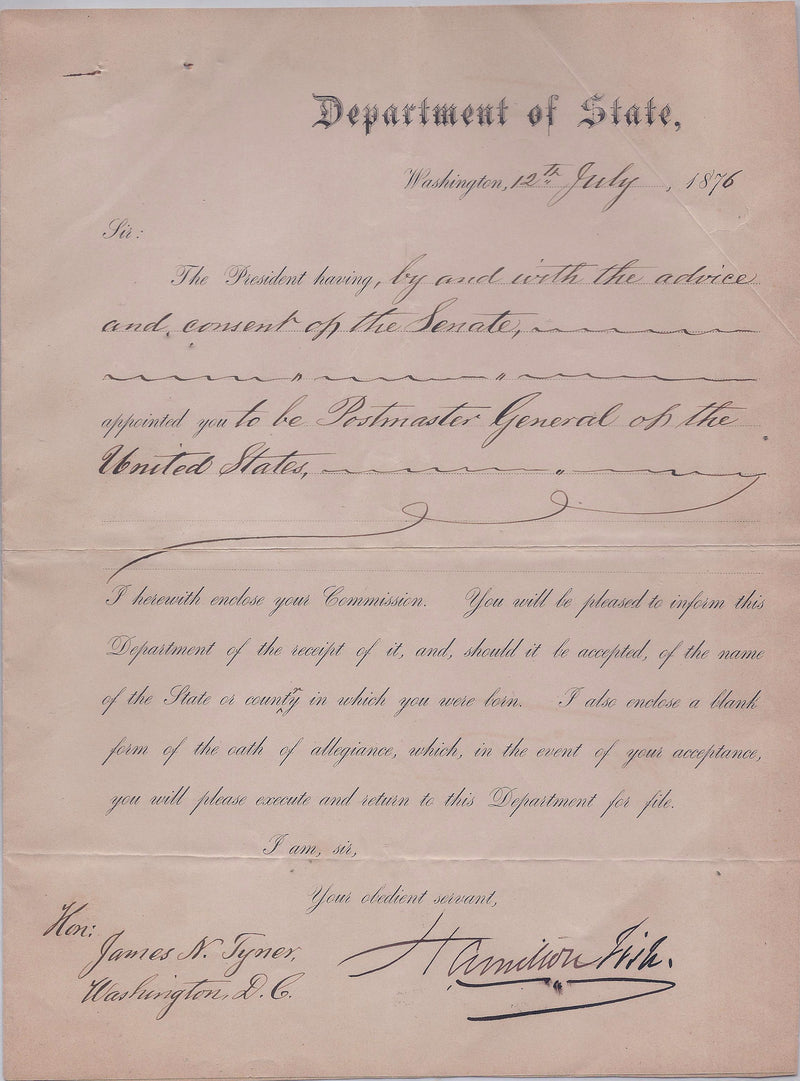 Department of State,
Washington, 12th July, 1876
Sir:
The President having, by and with the advice
and consent of the Senate,
appointed you to be Postmaster General of the
United States,
I herewith enclose your Commission. You will be pleased to inform this
Department of the receipt of it, and, should it be accepted, of the name
of the State or county in which you were born. I also enclose a blank
form of the oath of allegiance, which, in the event of your acceptance,
you will please execute and return to this Department for file.
I am, sir,
Your obedient servant,
Hamilton Fish.
Hon:
James N. Tyner,
Washington, D.C.